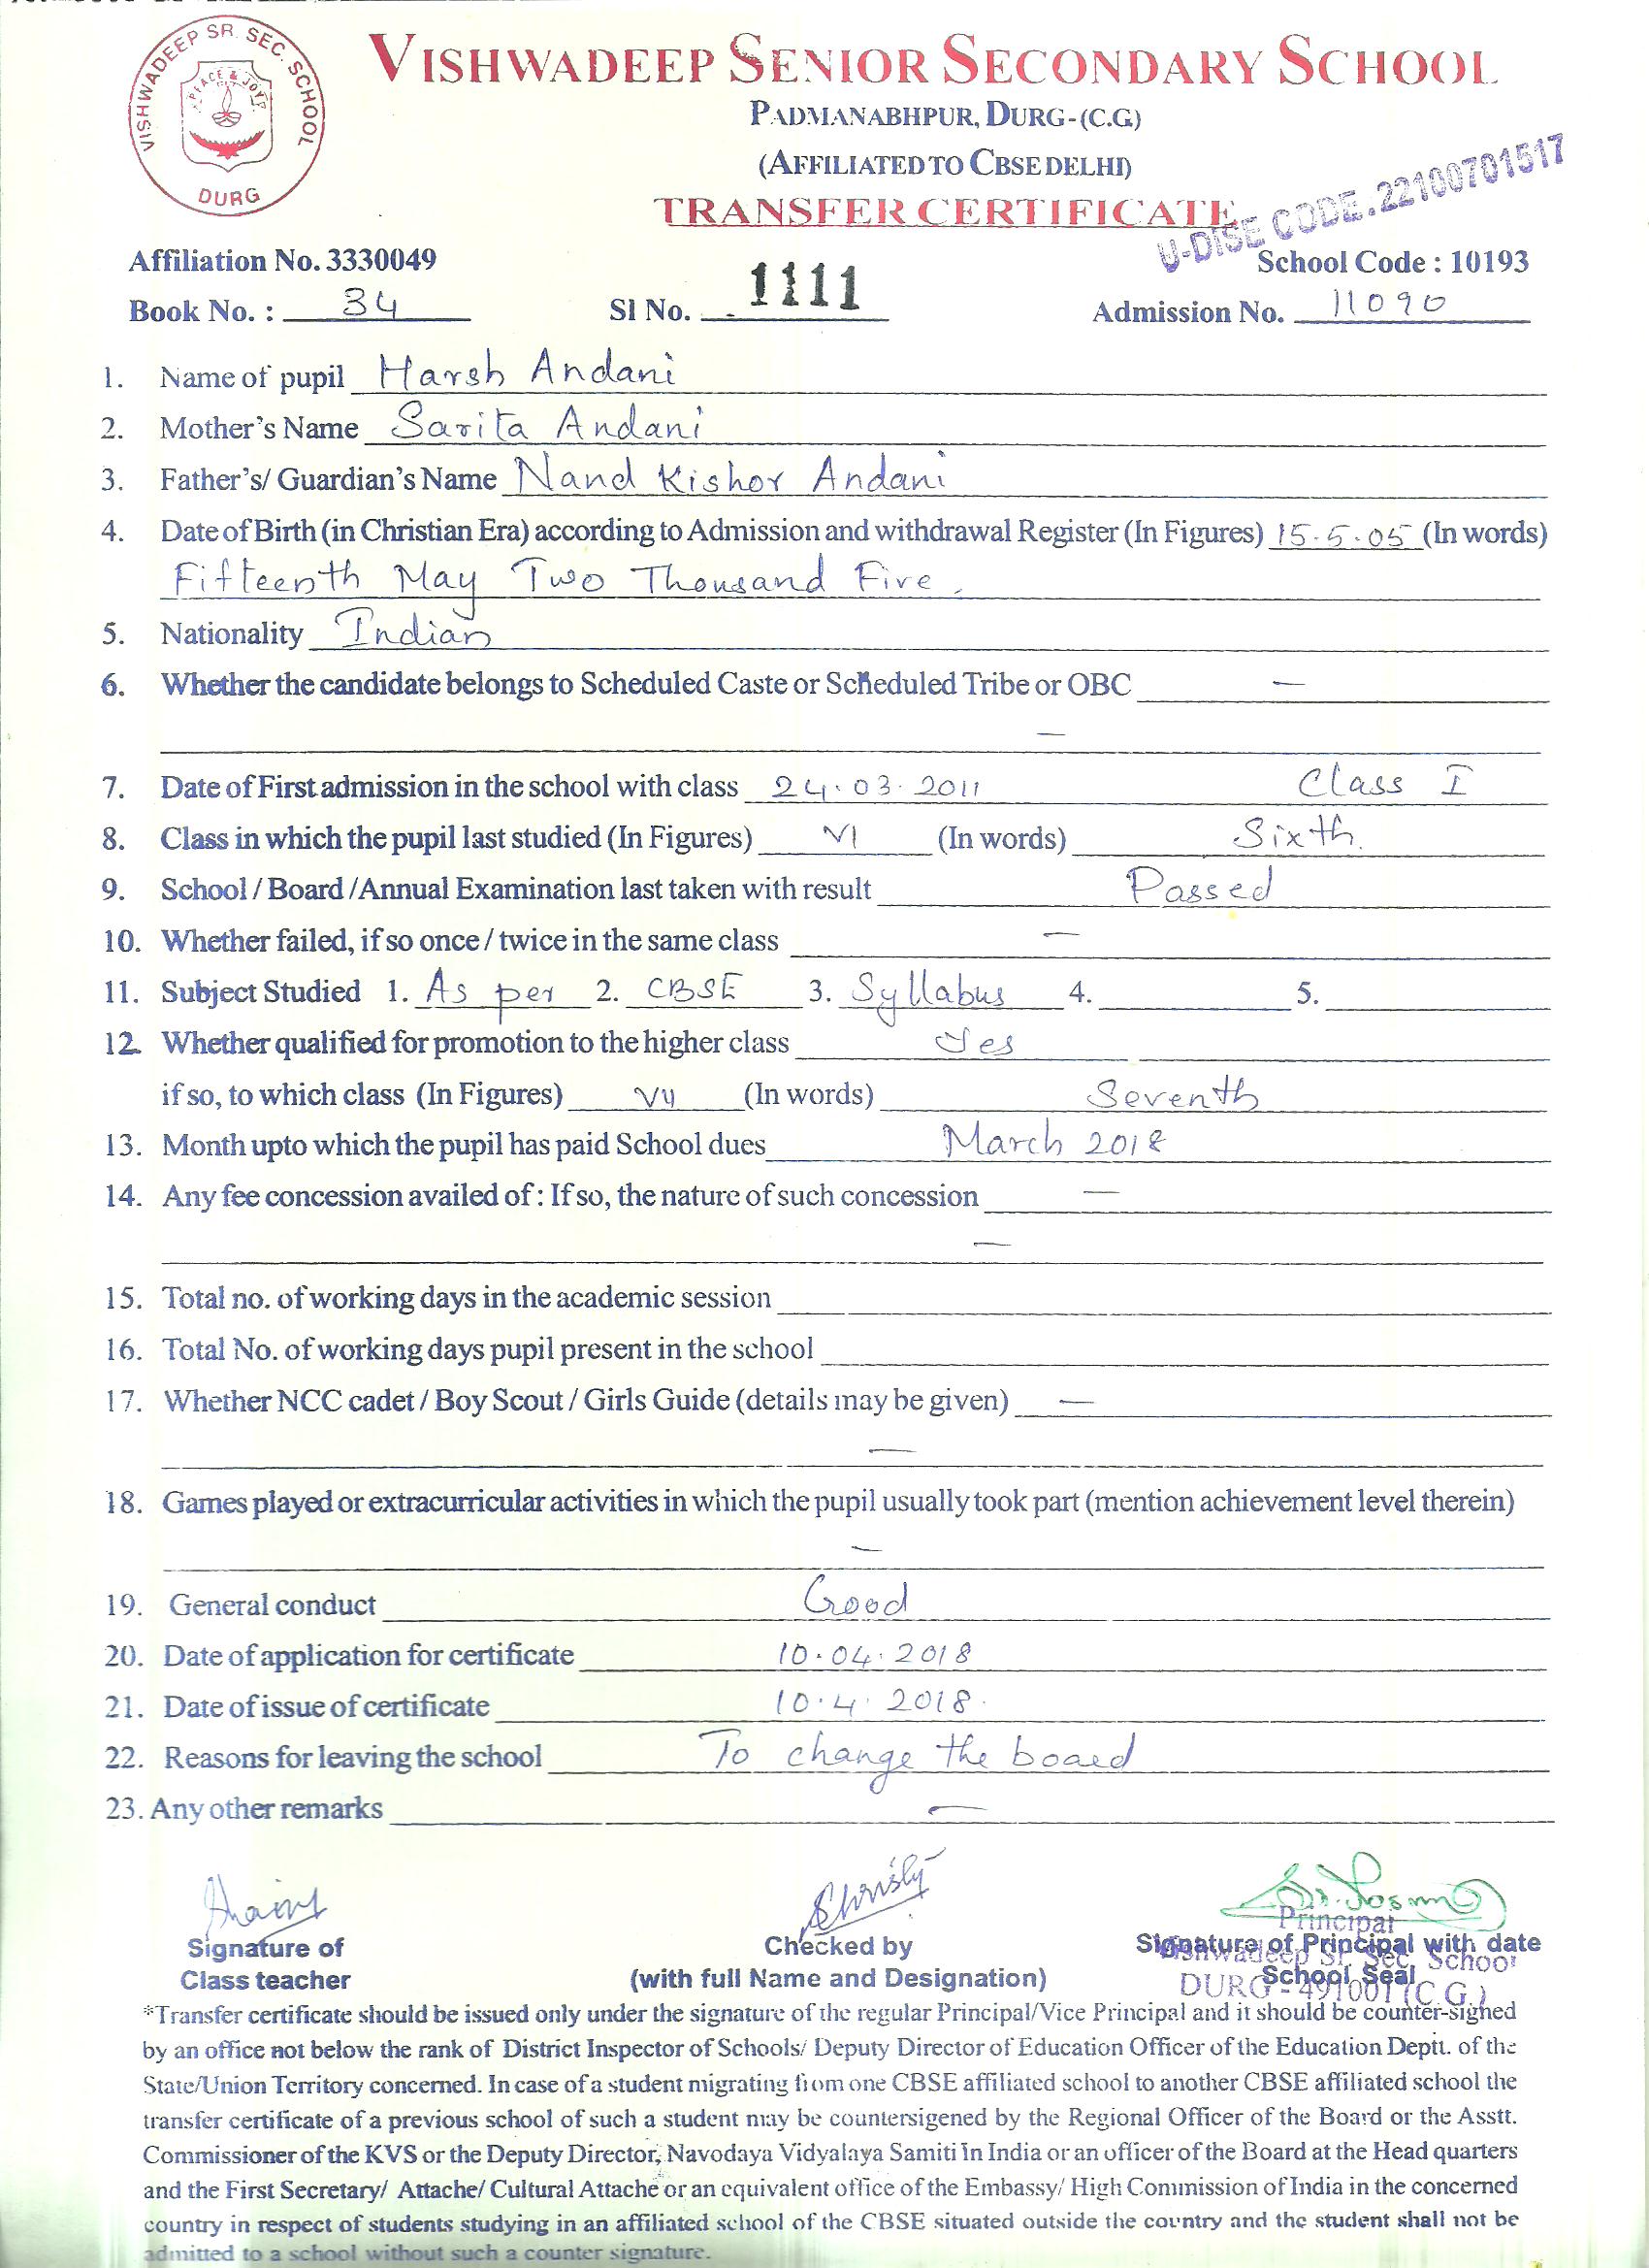 VISHWADEEP SR. SEC. SCHOOL
PEACE & JOY
DURG
VISHWADEEP SENIOR SECONDARY SCHOOL
PADMANABHPUR, DURG-(C.G.)
(AFFILIATED TO CBSE DELHI)
TRANSFER CERTIFICATE
U-DISE CODE. 22100701517
Affiliation No. 3330049 School Code : 10193
Book No. : 34 Sl No. 1111 Admission No. 11090
1. Name of pupil Harsh Andani
2. Mother's Name Sarita Andani
3. Father's/ Guardian's Name Nand Kishor Andani
4. Date of Birth (in Christian Era) according to Admission and withdrawal Register (In Figures) 15.5.05 (In words)
Fifteenth May Two Thousand Five
5. Nationality Indian
6. Whether the candidate belongs to Scheduled Caste or Scheduled Tribe or OBC —
—
7. Date of First admission in the school with class 24.03.2011 Class I
8. Class in which the pupil last studied (In Figures) VI (In words) Sixth.
9. School / Board /Annual Examination last taken with result Passed
10. Whether failed, if so once / twice in the same class —
11. Subject Studied 1. As per 2. CBSE 3. Syllabus 4. 5.
12. Whether qualified for promotion to the higher class Yes
if so, to which class (In Figures) VII (In words) Seventh
13. Month upto which the pupil has paid School dues March 2018
14. Any fee concession availed of : If so, the nature of such concession —
—
15. Total no. of working days in the academic session
16. Total No. of working days pupil present in the school
17. Whether NCC cadet / Boy Scout / Girls Guide (details may be given) —
—
18. Games played or extracurricular activities in which the pupil usually took part (mention achievement level therein)
—
19. General conduct Good
20. Date of application for certificate 10.04.2018
21. Date of issue of certificate 10.4.2018.
22. Reasons for leaving the school To change the board
23. Any other remarks —
Principal
Signature of Checked by Signature of Principal with date
Vishwadeep Sr. Sec. School
Class teacher (with full Name and Designation) School Seal
DURG - 491001 (C.G.)
*Transfer certificate should be issued only under the signature of the regular Principal/Vice Principal and it should be counter-signed
by an office not below the rank of District Inspector of Schools/ Deputy Director of Education Officer of the Education Deptt. of the
State/Union Territory concerned. In case of a student migrating from one CBSE affiliated school to another CBSE affiliated school the
transfer certificate of a previous school of such a student may be countersigened by the Regional Officer of the Board or the Asstt.
Commissioner of the KVS or the Deputy Director, Navodaya Vidyalaya Samiti in India or an officer of the Board at the Head quarters
and the First Secretary/ Attache/ Cultural Attache or an equivalent office of the Embassy/ High Commission of India in the concerned
country in respect of students studying in an affiliated school of the CBSE situated outside the country and the student shall not be
admitted to a school without such a counter signature.